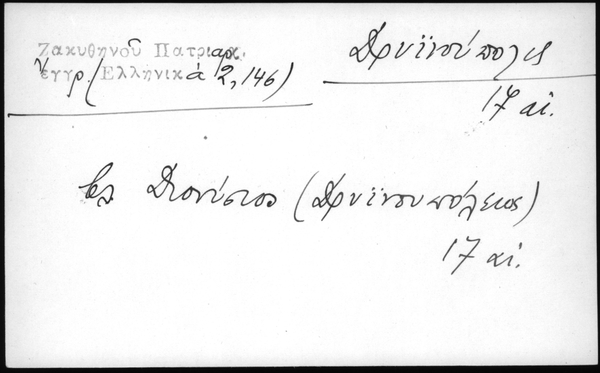 Ζακυθηνοῦ Πατριαρχ.
ἔγγρ. (Ἑλληνικά 2, 146)
Δρυϊνούπολις
17 αἰ.
βλ Διονύσιος (Δρυϊνουπόλεως)
17 αἰ.